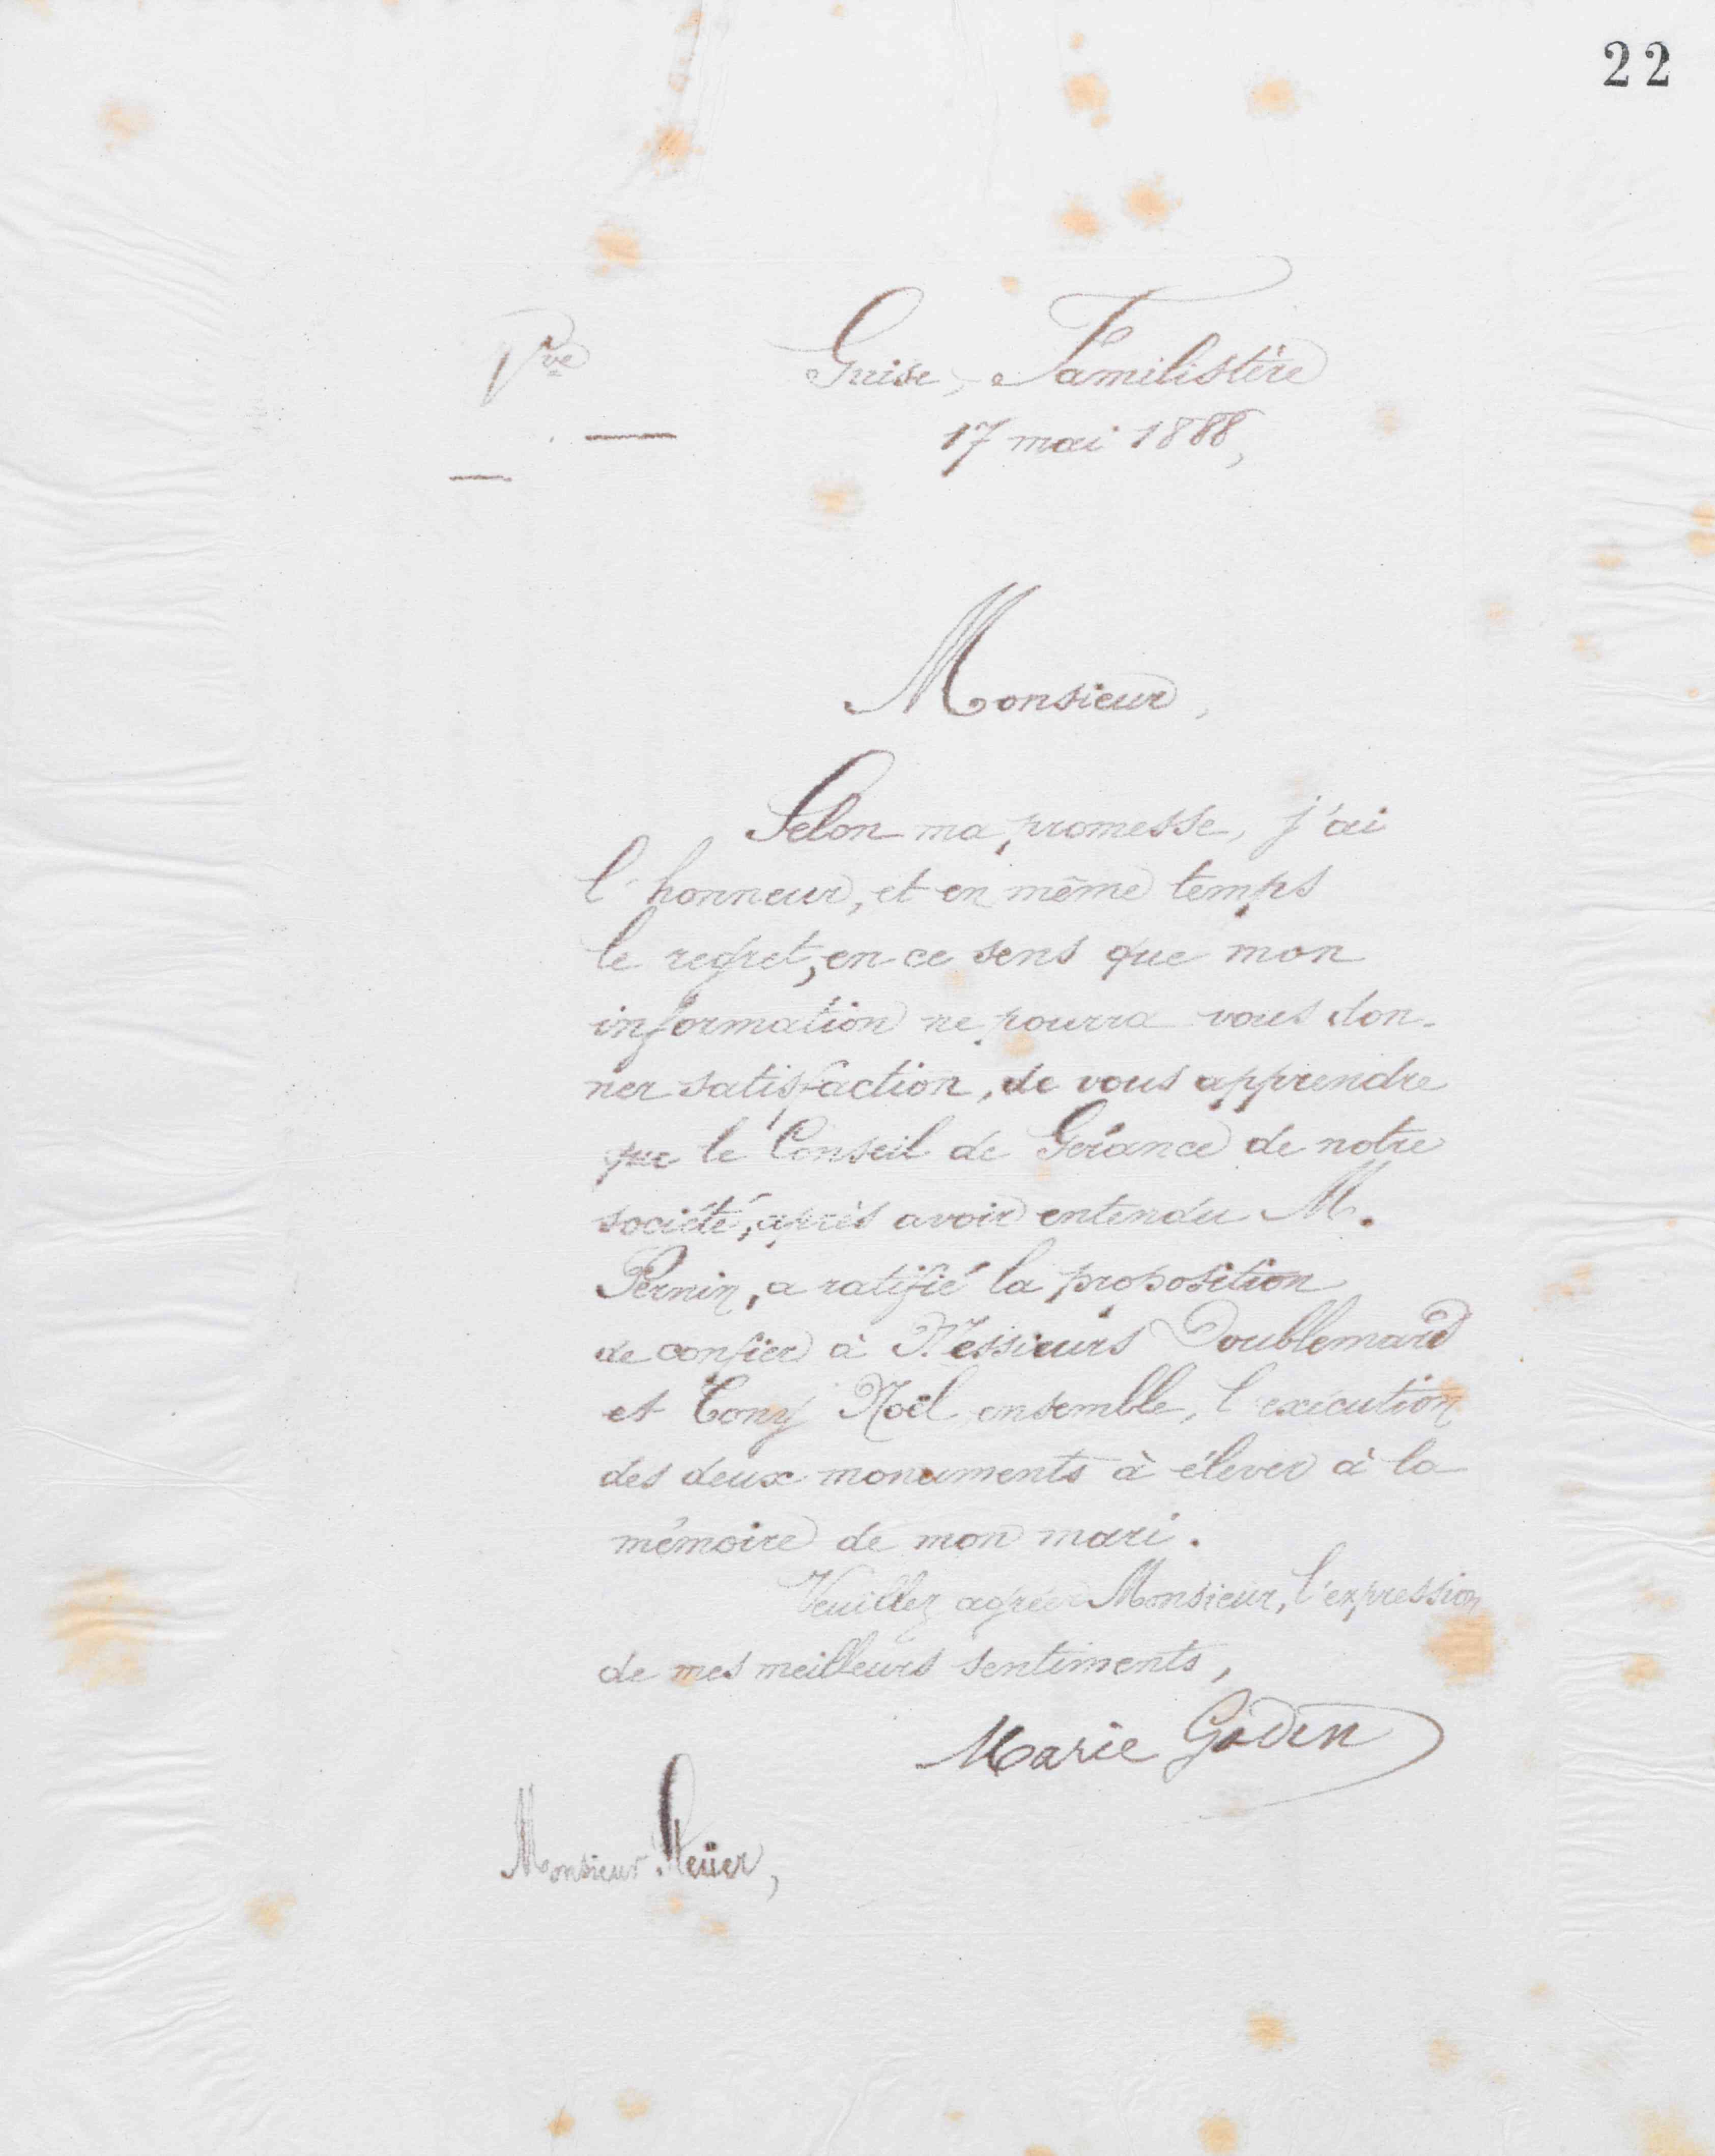 22
Pve
Guise, Familistère
17 mai 1888,
Monsieur,
Selon ma promesse, j'ai
l'honneur, et en même temps
le regret, en ce sens que mon
information ne pourra vous don-
ner satisfaction, de vous apprendre
que le Conseil de Gérance de notre
société, après avoir entendu M.
Pernin, a ratifié la proposition
de confier à Messieurs Doublemard
et Tony Noël ensemble, l'exécution
des deux monuments à élever à la
mémoire de mon mari.
Veuillez agréer Monsieur, l'expression
de mes meilleurs sentiments,
Marie Godin
Monsieur Steüer,